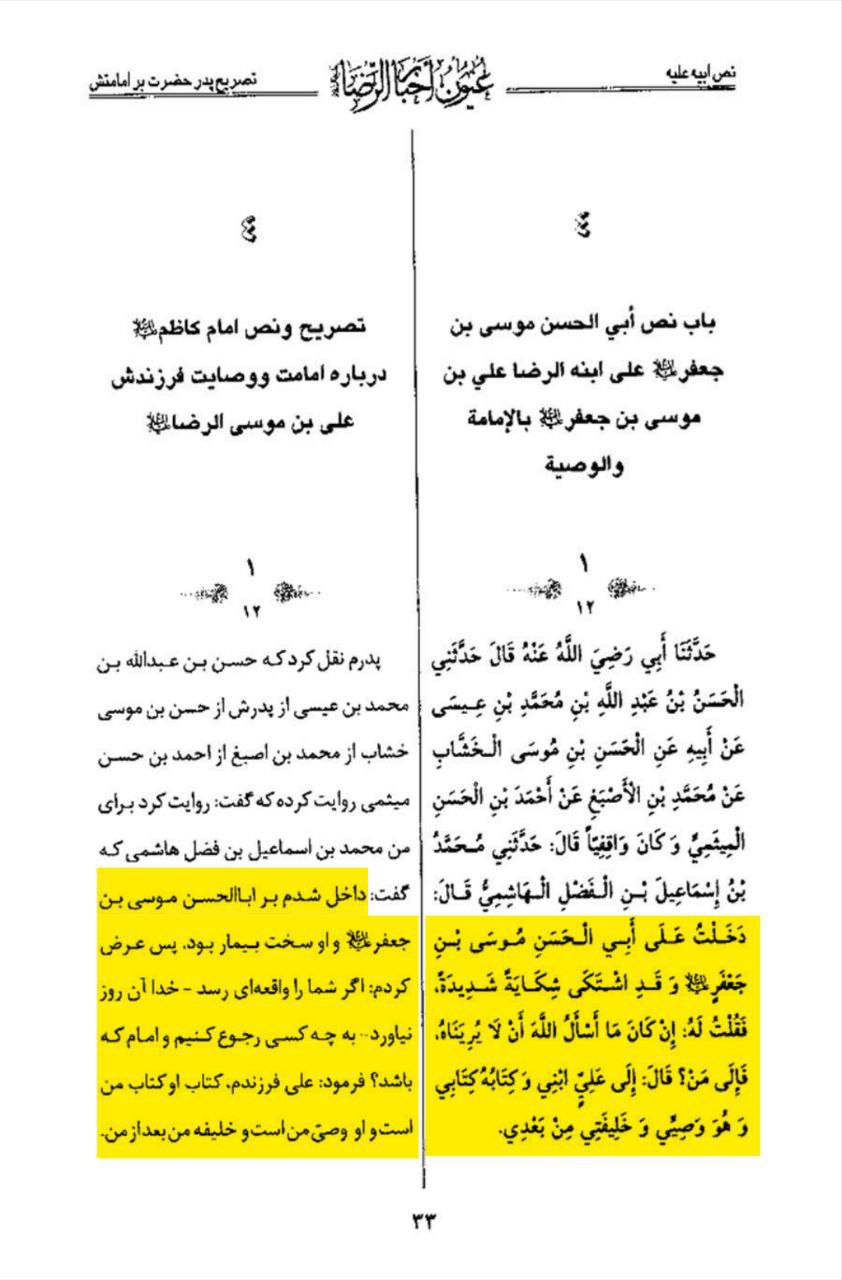 نص ابیه علیه
عیون أخبار الرضا
تصریح پدر حضرت بر امامتش
٤
باب نص أبي الحسن موسى بن
جعفر علیه السلام على ابنه الرضا علي بن
موسى بن جعفر علیه السلام بالإمامة
والوصية
١
١٢
حَدَّثَنَا أَبِي رَضِيَ اللَّهُ عَنْهُ قَالَ حَدَّثَنِي
الْحَسَنُ بْنُ عَبْدِ اللَّهِ بْنِ مُحَمَّدِ بْنِ عِيسَى
عَنْ أَبِيهِ عَنِ الْحَسَنِ بْنِ مُوسَى الْخَشَّابِ
عَنْ مُحَمَّدِ بْنِ الْأَصْبَغِ عَنْ أَحْمَدَ بْنِ الْحَسَنِ
الْمِيثَمِيِّ وَ كَانَ وَاقِفِيّاً قَالَ: حَدَّثَنِي مُحَمَّدُ
بْنُ إِسْمَاعِيلَ بْنِ الْفَضْلِ الْهَاشِمِيُّ قَالَ:
دَخَلْتُ عَلَى أَبِي الْحَسَنِ مُوسَى بْنِ
جَعْفَرٍ علیه السلام وَ قَدِ اشْتَكَى شِكَايَةً شَدِيدَةً،
فَقُلْتُ لَهُ: إِنْ كَانَ مَا أَسْأَلُ اللَّهَ أَنْ لَا يُرِيَنَاهُ،
فَإِلَى مَنْ؟ قَالَ: إِلَى عَلِيٍّ ابْنِي وَ كِتَابُهُ كِتَابِي
وَ هُوَ وَصِيِّي وَ خَلِيفَتِي مِنْ بَعْدِي.
٤
تصریح ونص امام کاظم علیه السلام
درباره امامت ووصایت فرزندش
علی بن موسی الرضا علیه السلام
١
١٢
پدرم نقل کرد که حسن بن عبدالله بن
محمد بن عیسی از پدرش از حسن بن موسی
خشاب از محمد بن اصبغ از احمد بن حسن
میثمی روایت کرده که گفت: روایت کرد برای
من محمد بن اسماعیل بن فضل هاشمی که
گفت: داخل شدم بر اباالحسن موسی بن
جعفر علیه السلام و او سخت بیمار بود، پس عرض
کردم: اگر شما را واقعه‌ای رسد - خدا آن روز
نیاورد - به چه کسی رجوع کنیم و امام که
باشد؟ فرمود: علی فرزندم، کتاب او کتاب من
است و او وصیّ من است و خلیفه من بعد از من.
٣٣